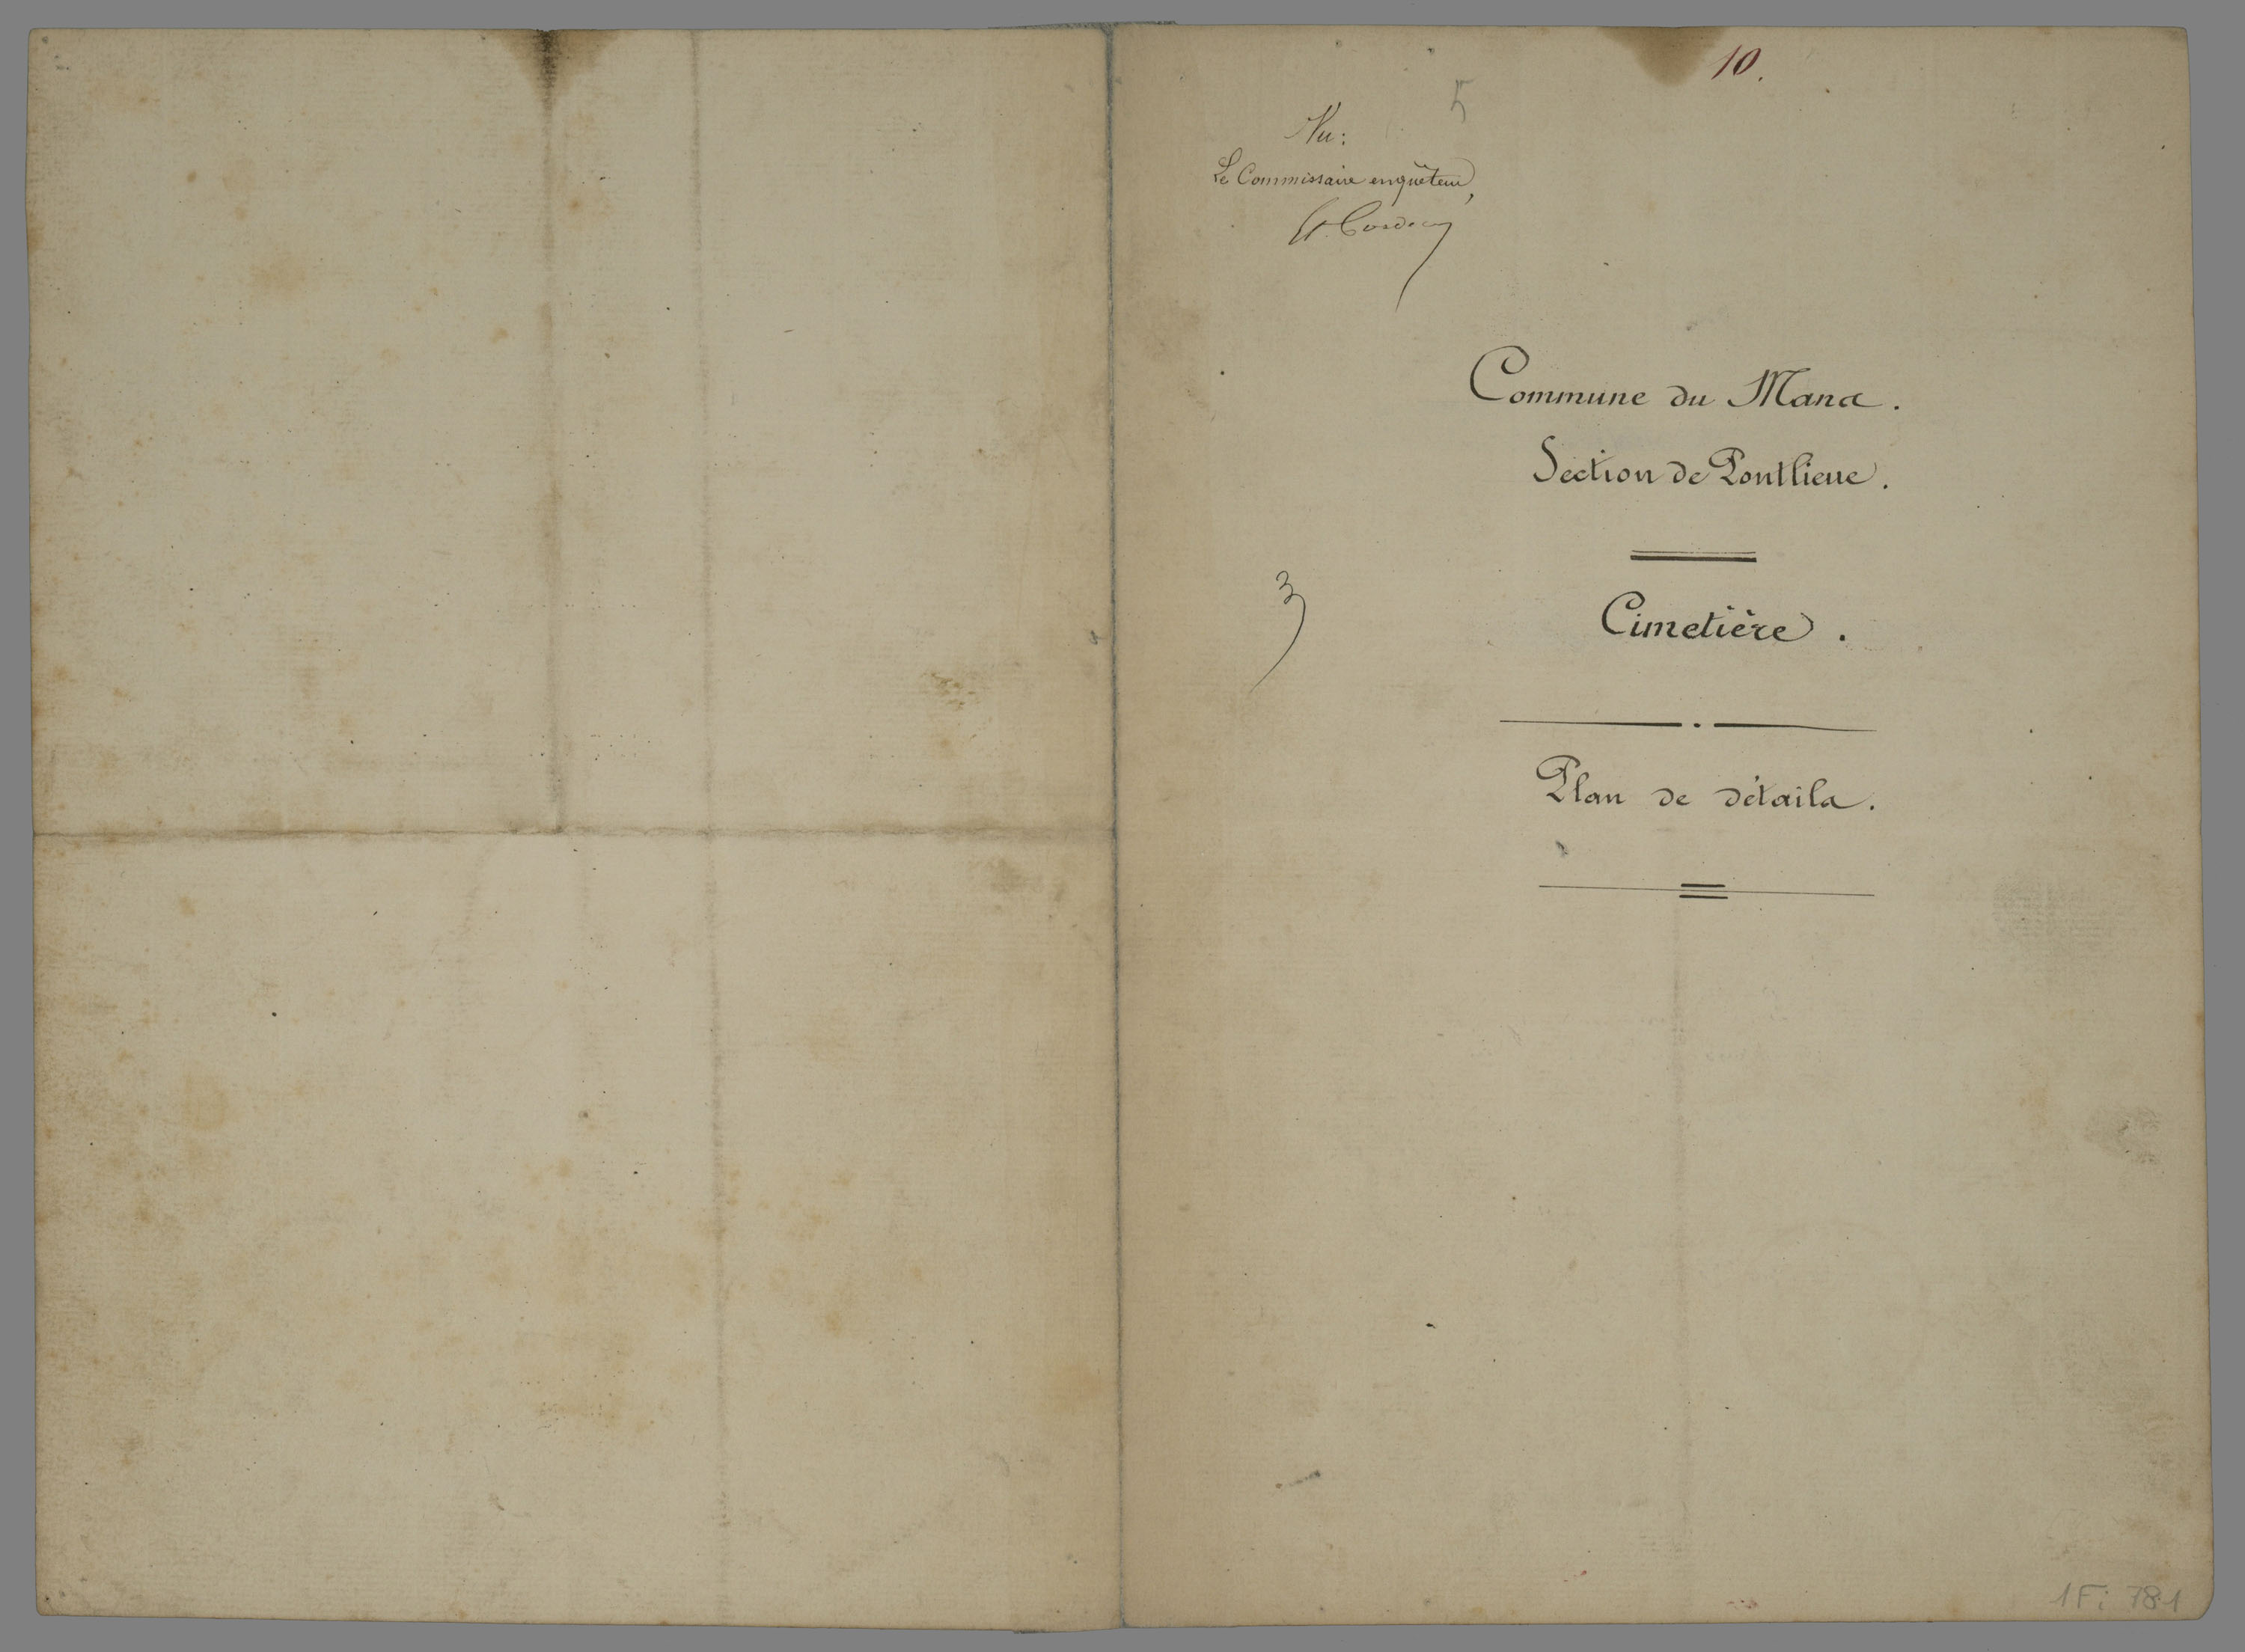 10.
5
Vu:
Le Commissaire enquêteur,
Commune du Mans.
Section de Pontlieue.
3
Cimetière.
Plan de détails.
1 Fi 781